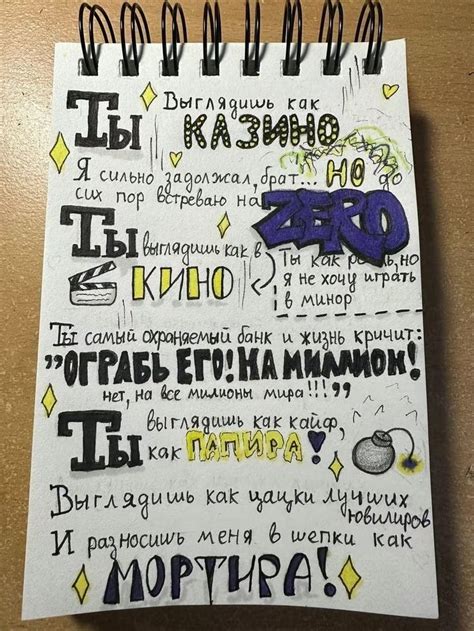 Ты Выглядишь как
КАЗИНО
Я сильно задолжал, брат... но до
сих пор встреваю на ZERO
Ты выглядишь как в
КИНО
Ты как роль, но
я не хочу играть
в минор
Ты самый охраняемый банк и жизнь кричит:
"ОГРАБЬ ЕГО! НА МИЛЛИОН!
нет, на все милионы мира!!!"
Ты выглядишь как кайф,
как ПАПИРА!
Выглядишь как цацки лучших
ювилиров
И разносишь меня в щепки как
МОРТИРА!